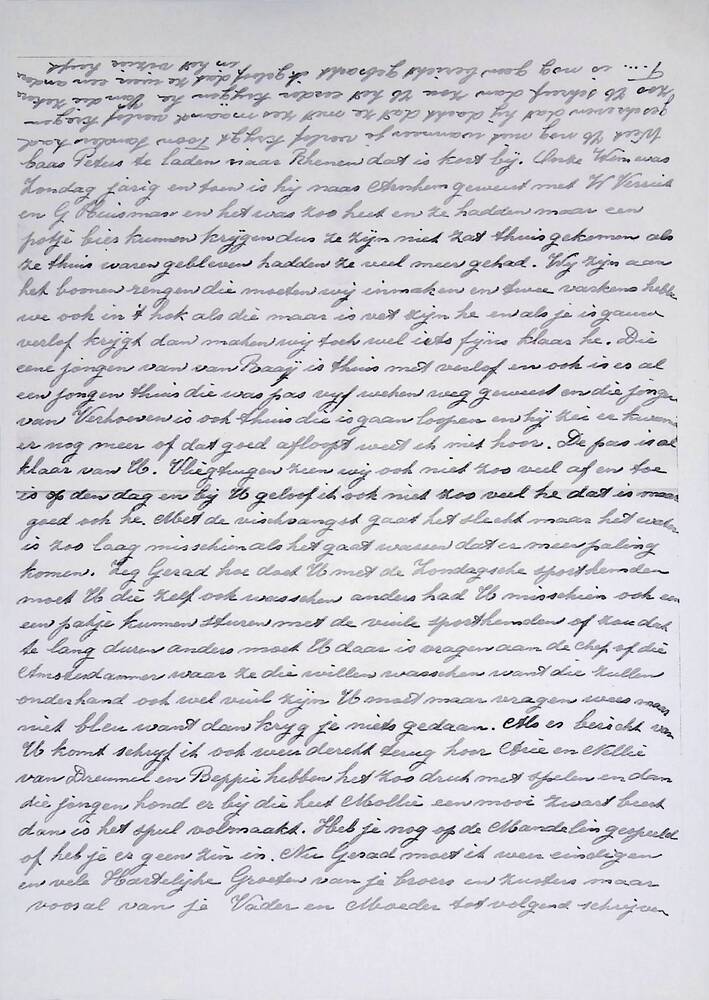 baas Peters te laden naar Rhenen dat is kort bij. Onze Wim was
Zondag jarig en toen is hij naar Arnhem geweest met W Verriet
en G Huisman en het was zoo heet en ze hadden maar een
potje bier kunnen krijgen dus ze zijn niet zat thuis gekomen als
ze thuis waren gebleven hadden ze veel meer gehad. Wij zijn aan
het boonen rengen die moeten wij inmaken en twee varkens hebben
we ook in 't hok als die maar is vet zijn he en als je is gauw
verlof krijgt dan maken wij toch wel iets fijns klaar he. Die
eene jongen van van Raaij is thuis met verlof en ook is er al
een jongen thuis die was pas vijf weken weg geweest en die jongen
van Verhoeven is ook thuis die is gaan loopen en hij zei er kwam
er nog meer of dat goed afloopt weet ik niet hoor. De pas is al
klaar van U. Vliegtuigen zien wij ook niet zoo veel af en toe
is op den dag en bij U geloof ik ook niet zoo veel he dat is maar
goed ook he. Met de vischvangst gaat het slecht maar het water
is zoo laag misschien als het gaat wassen dat er meer paling
komen. Zeg Gerad hoe doet U met de Zondagsche sporthemden
moet U die zelf ook wasschen anders had U misschien ook een
een pakje kunnen sturen met de vuile sporthemden of zou dat
te lang duren anders moet U daar is vragen aan de chef of die
Amsterdammer waar ze die willen wasschen want die zullen
onderhand ook wel vuil zijn U moet maar vragen wees maar
niet bleu want dan kryg je niets gedaan. Als er bericht van
U komt schryf ik ook weer derekt terug hoor Arie en Nellie
van Dreumel en Beppie hebben het zoo druk met spelen en dan
die jongen hond er bij die heet Mollie een mooi zwart beest
dan is het spul volmaakt. Heb je nog op de Mandelin gespeeld
of heb je er geen zin in. Nu Gerad moet ik weer eindigen
en vele Hartelijke Groeten van je broers en zusters maar
vooral van je Vader en Moeder tot volgend schrijven
Weet U nog niet wanneer je verlof krijgt Toon Sanders had
geschreven dat hij dacht dat ze met zes maand verlof kregen
zoo U schreef dan zou U het eerder krijgen he Van die zeker
T.... is nog geen bericht gebracht ik geloof dat ze weer een ander
in het vizier heeft